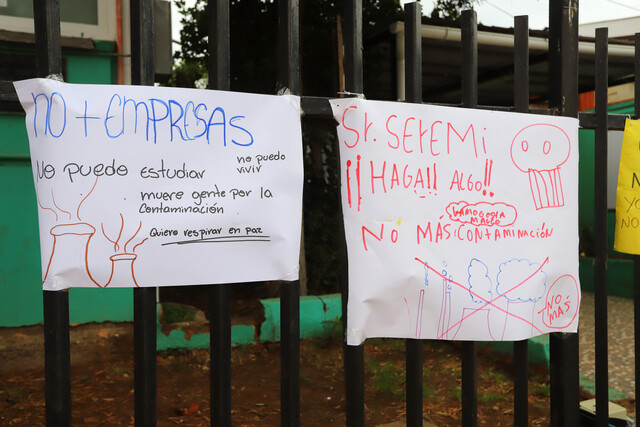 NO + EMPRESAS
No puedo estudiar
no puedo
vivir
muere gente por la
contaminación
Quiero respirar en paz
Sr. SEREMi
¡¡HAGA!! ALGO!!
NO MÁS CONTAMINACIÓN
NO
MÁS
N